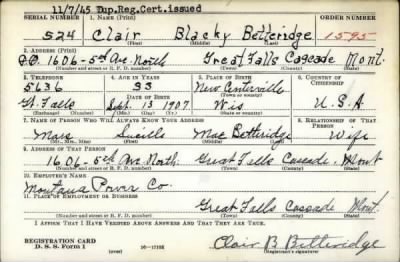 11/7/45 Dup. Reg. Cert. issued
SERIAL NUMBER 1. NAME (Print) ORDER NUMBER
524 Clair Blacky Betteridge 1595
(First) (Middle) (Last)
2. ADDRESS (Print)
1606-5th Ave. North Great Falls Cascade Mont.
(Number and street or R. F. D. number) (Town) (County) (State)
3. TELEPHONE 4. AGE IN YEARS 5. PLACE OF BIRTH 6. COUNTRY OF CITIZENSHIP
5636 33 New Centerville
(Town or county)
DATE OF BIRTH
Gt. Falls Sept. 13 1907 Wis U.S.A
(Exchange) (Number) (Mo.) (Day) (Yr.) (State or country)
7. NAME OF PERSON WHO WILL ALWAYS KNOW YOUR ADDRESS 8. RELATIONSHIP OF THAT PERSON
Mrs Lucille Mae Betteridge Wife
(Mr., Mrs., Miss) (First) (Middle) (Last)
9. ADDRESS OF THAT PERSON
1606-5th Ave. North. Great Falls Cascade. Mont
(Number and street or R. F. D. number) (Town) (County) (State)
10. EMPLOYER'S NAME
Montana Power Co.
11. PLACE OF EMPLOYMENT OR BUSINESS
Great Falls Cascade Mont.
(Number and street or R. F. D. number) (Town) (County) (State)
I AFFIRM THAT I HAVE VERIFIED ABOVE ANSWERS AND THAT THEY ARE TRUE.
REGISTRATION CARD
D. S. S. Form 1 (over) Clair B. Betteridge
(Registrant's signature)